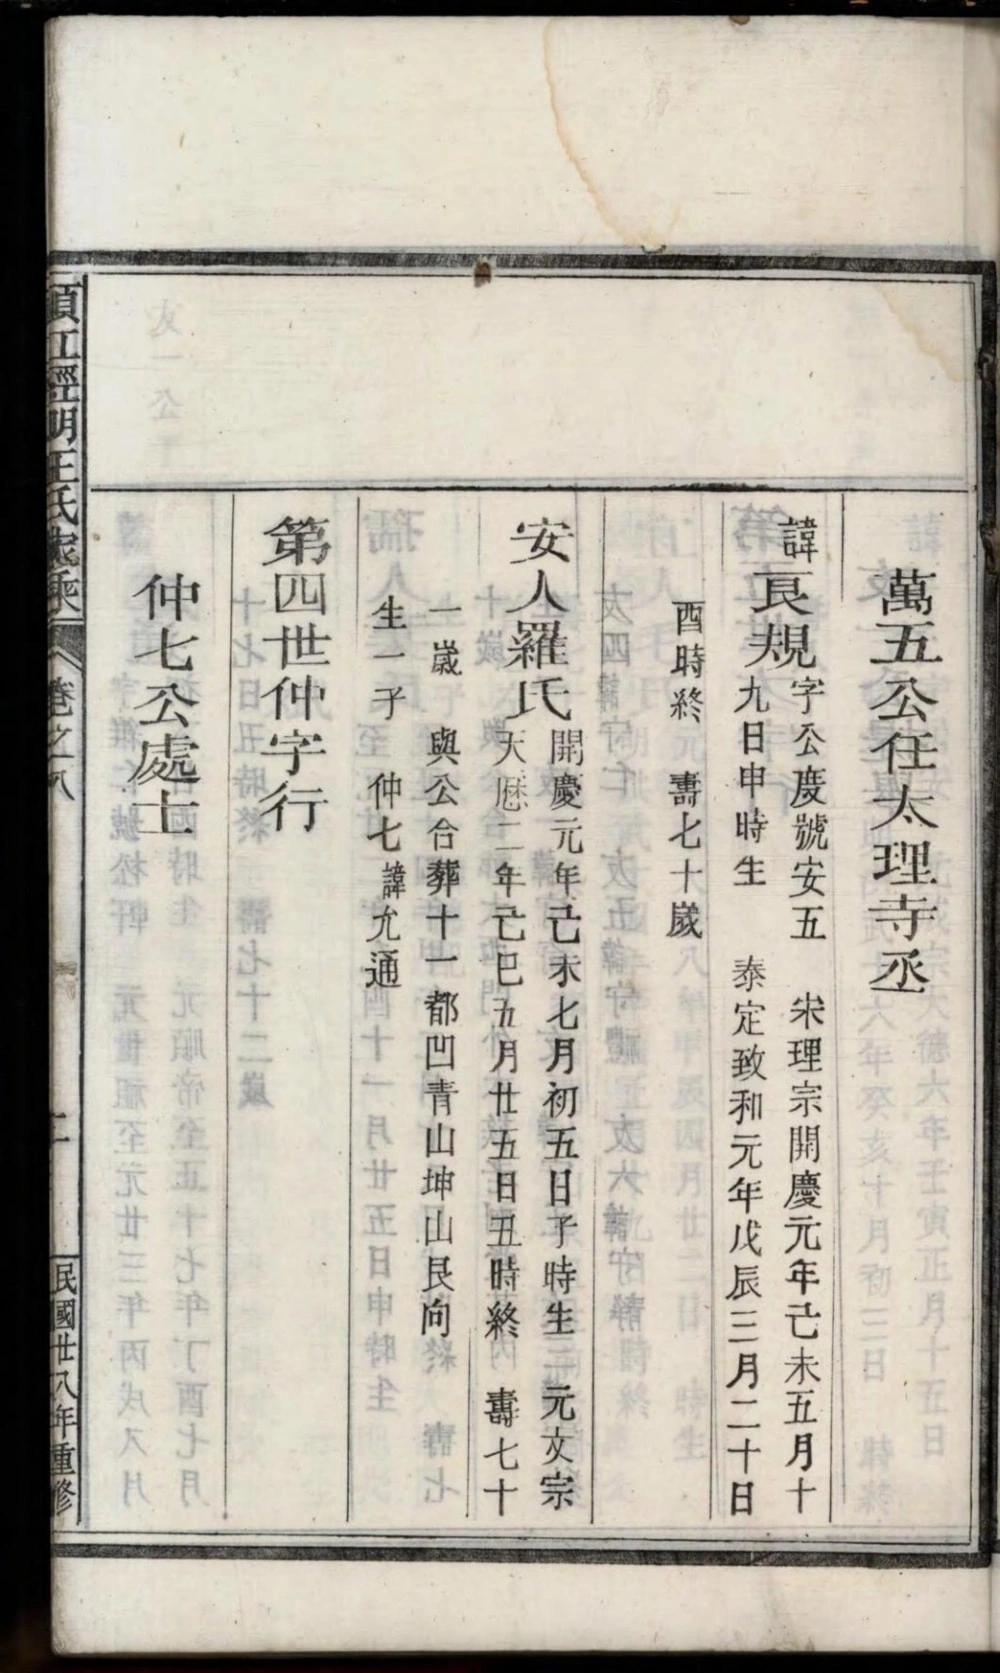 萬五公任太理寺丞
諱良規字公度號安五　宋理宗開慶元年己未五月十
九日申時生　泰定致和元年戊辰三月二十日
酉時終　壽七十歲
安人羅氏開慶元年己未七月初五日子時生　元文宗
天曆二年己巳五月廿五日丑時終　壽七十
一歲　與公合葬十一都凹青山坤山艮向
生一子　仲七諱允通
第四世仲字行
仲七公處士
項江經明王氏家乘
卷之八
民國廿八年重修